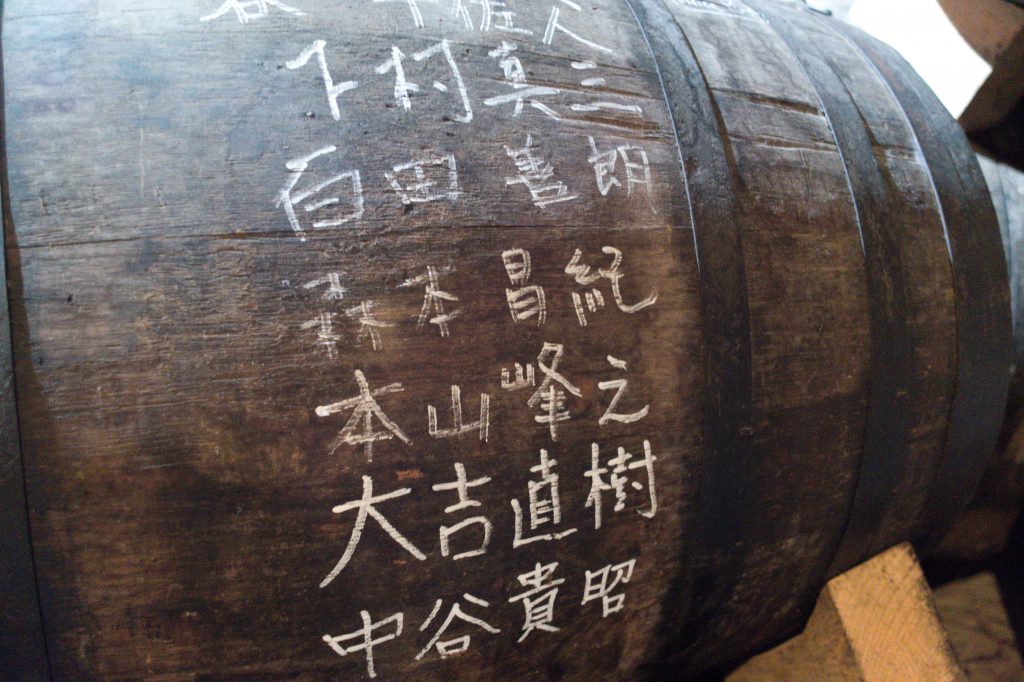 下村真三
百田善朗
森本昌紀
本山峰之
大吉直樹
中谷貴昭